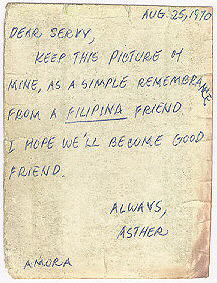 AUG. 25, 1970
DEAR SERVY,
KEEP THIS PICTURE OF
MINE, AS A SIMPLE REMEMBRANCE
FROM A FILIPINA FRIEND
I HOPE WE'LL BECOME GOOD
FRIEND.
ALWAYS,
ASTHER
AMORA